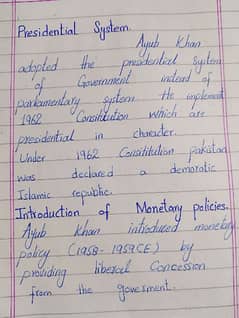 Presidential System.
Ayub Khan
adopted the presidential system
of Government instead of
parliamentary system. He implement
1962 Constitution which are
presidential in character.
Under 1962 Constitution pakistan
was declared a democratic
Islamic republic.
Introduction of Monetary policies.
Ayub Khan introduced monetary
policy (1958-1959CE) by
providing liberal Concession
from the goverment.